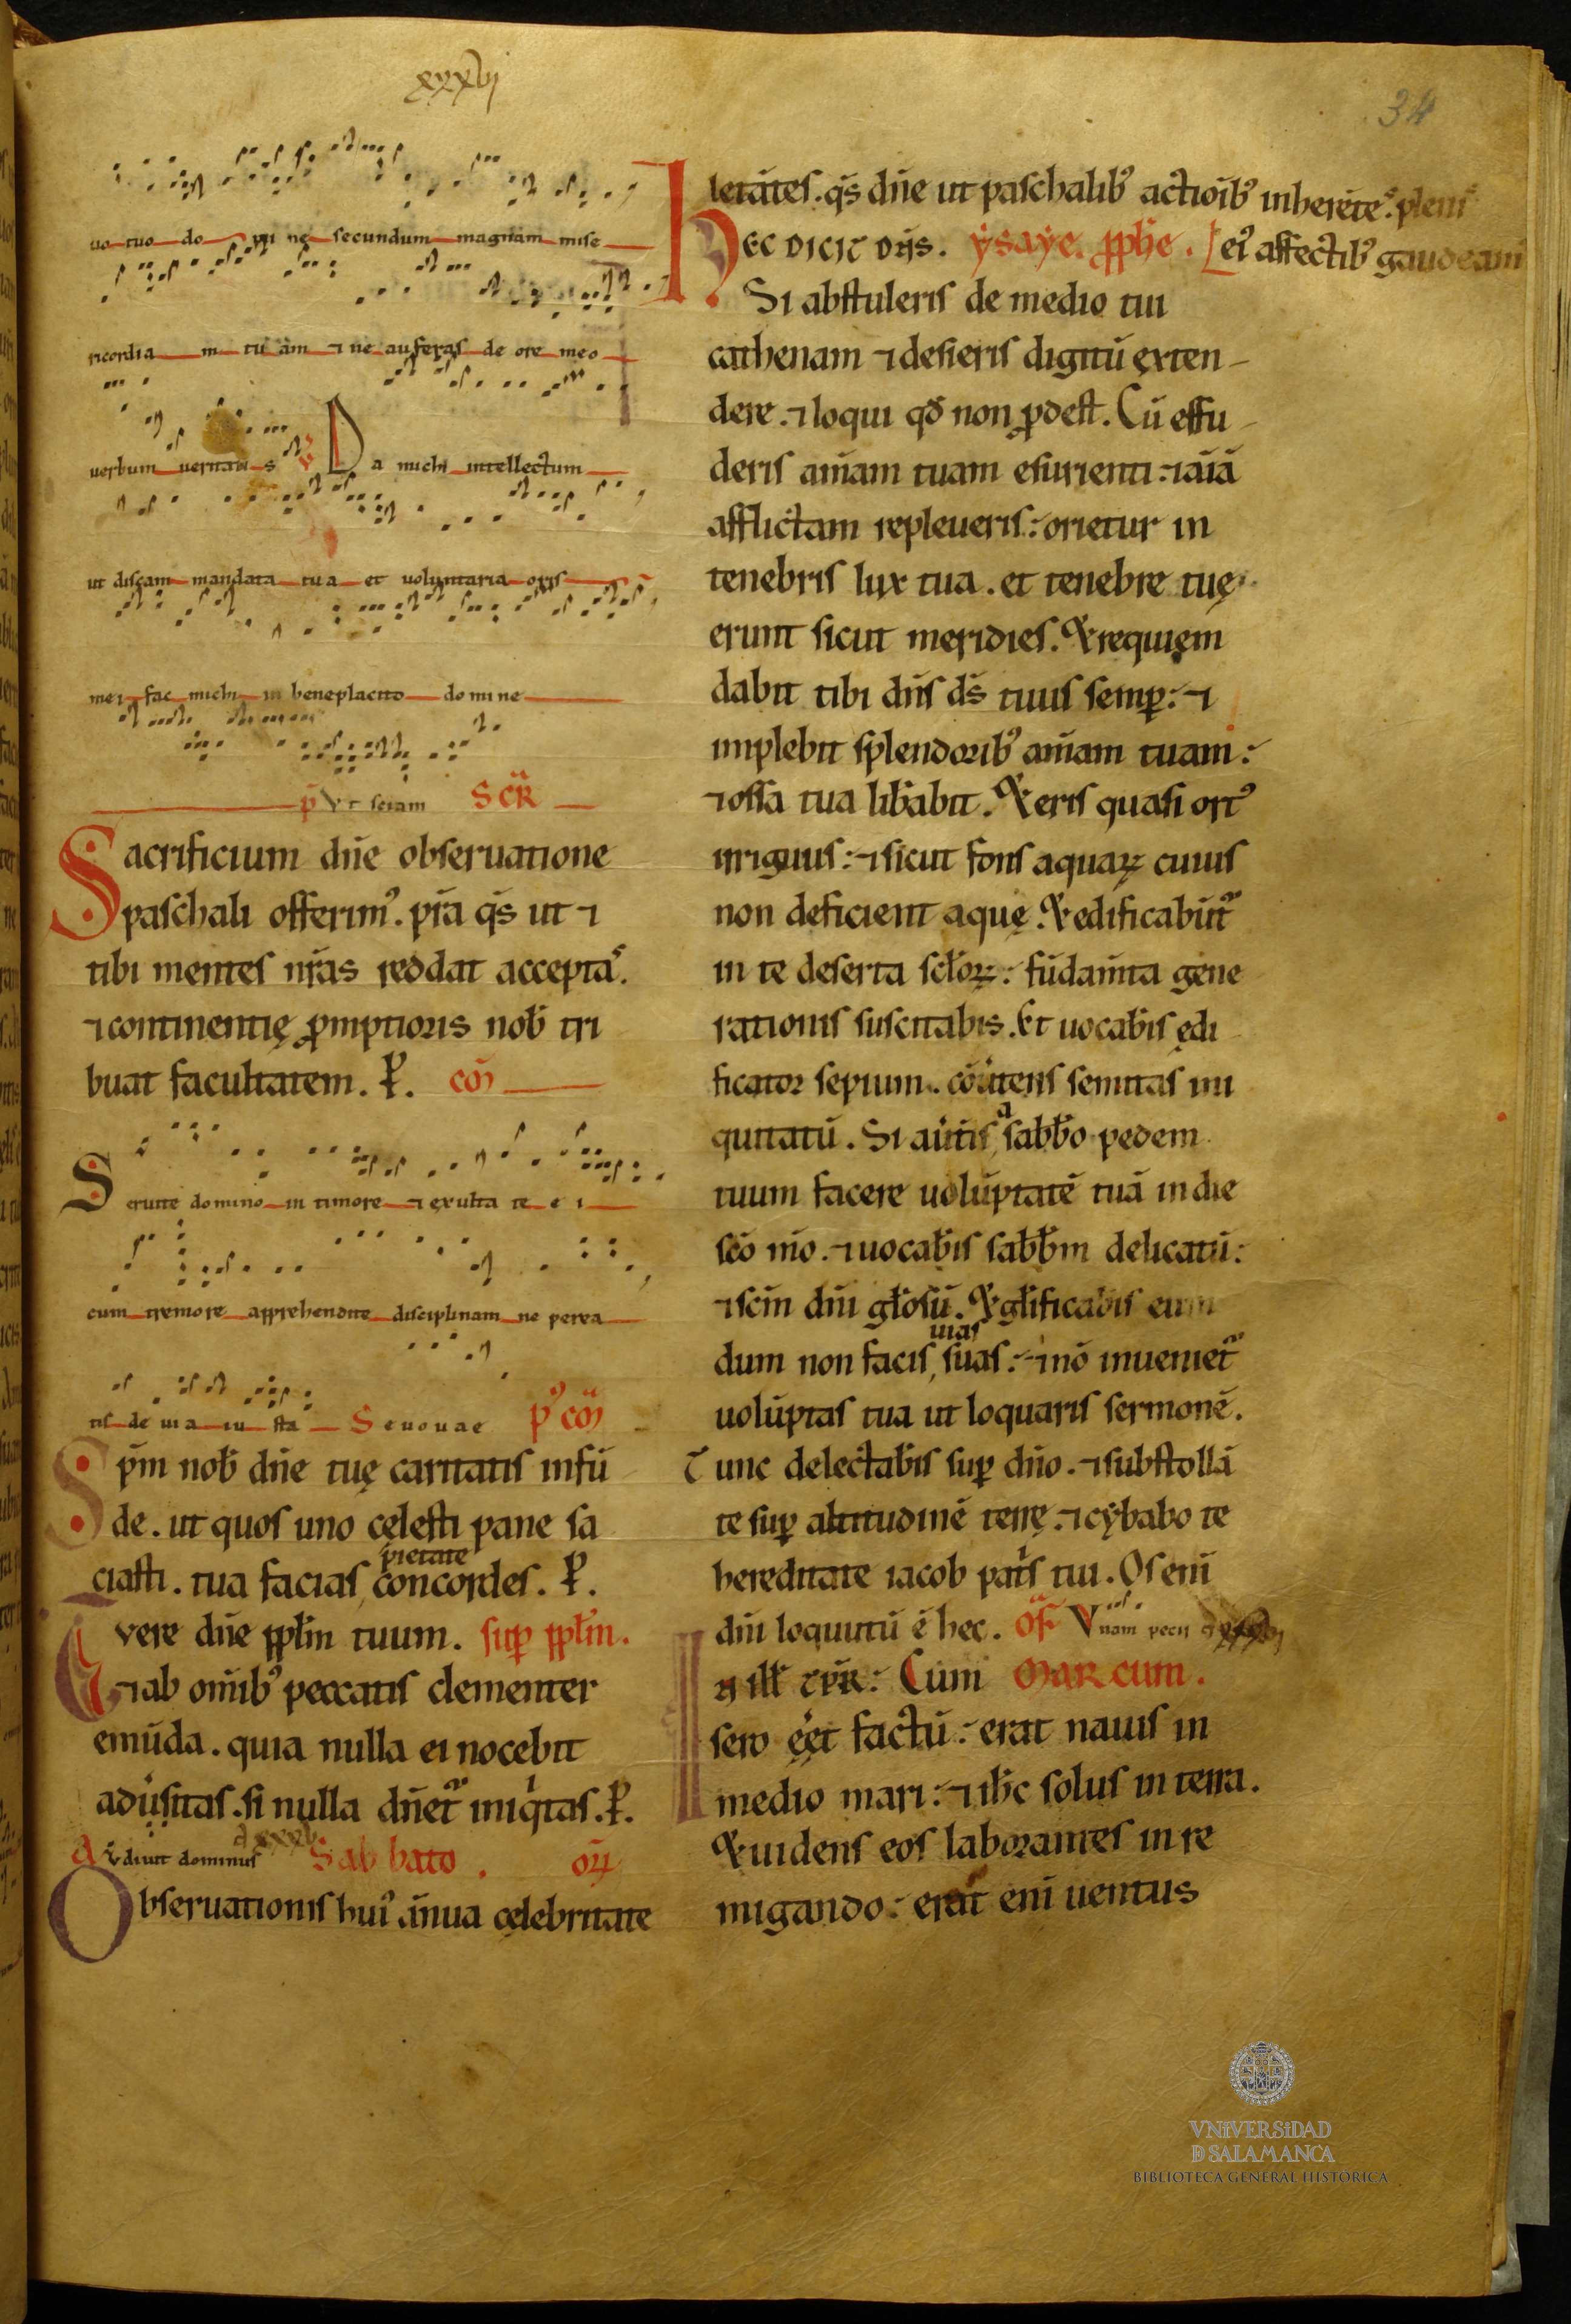 xxxvij
34
uo tuo do mi ne secundum magnam mise
ricordia m tu am ⁊ ne auferas de ore meo
verbum veritatis ℣ Da michi intellectum
ut discam mandata tua et uoluntaria oris
mei fac michi in beneplacito domine
p̄ Vt sciam SCR̄
Sacrificium dn̄e obseruatione
paschali offerimꝰ. p̄ra q̄s ut ⁊
tibi mentes nr̄as reddat acceptas.
⁊ continentię ꝓmptioris nob̄ tri
buat facultatem. P̄. cō
Seruite domino in timore ⁊ exulta te e i
cum tremore apprehendite disciplinam ne perea
tis de uia iusta Seuouae pꝰ cō
Sp̄m nob̄ dn̄e tuę caritatis infū
de. ut quos uno cęlesti pane sa
ciasti. tua facias pietate concordes. P̄.
Tuere dn̄e ppl̄m tuum. suꝑ ppl̄m.
⁊ ab om̄ibꝰ peccatis clementer
emūda. quia nulla ei nocebit
adūsitas. si nulla dn̄et᷑ iniqͥtas. P̄.
Avdiuit dominus Sabbato. oꝝ
Obseruationis huiꝰ ānua cęlebritate
letātes. q̄s dn̄e ut paschalibꝰ actiōibꝰ inherētes. plenis
Hec dicit dn̄s. ysaye. ꝓph̄e. eiꝰ affectibꝰ gaudeam
Si abstuleris de medio tui
cathenam ⁊ desieris digitū exten-
dere. ⁊ loqui qđ non ꝓdest. Cū effu-
deris am̄am tuam esurienti: ⁊ aīā
afflictam repleueris: orietur in
tenebris lux tua. et tenebre tuę
erunt sicut meridies. Et requiem
dabit tibi dn̄s ds̄ tuus semꝑ: ⁊
implebit splendoribꝰ am̄am tuam:
⁊ ossa tua lib̄abit. Et eris quasi ortꝰ
irriguus: ⁊ sicut fons aquaꝝ cuius
non deficient aquę. Et edificabūt᷑
in te deserta sc̄loꝝ: fūdam̄ta gene
rationis suscitabis. Et uocab̄is ędi
ficator sepium. cōūtens semitas ini
quitatū. Si aūtis a sabb̄o pedem
tuum facere uolūptatē tuā in die
sc̄o m̄o. ⁊ uocab̄is sabb̄m delicatū:
⁊ sc̄m dn̄i gl̄osū. Et gl̄ificabis eum
dum non facis uias suas: ⁊ nō inueniet᷑
uolūptas tua ut loquaris sermonē.
Tunc delectab̄is suꝑ dn̄o. ⁊ substollā
te suꝑ altitudinē terrę. ⁊ cybabo te
hereditate iacob patͥs tui. Os enī
dn̄i loquutū ē hec. Of̄ Vnam pecii
In ill̄ tp̄r: Cum Marcum.
sero ęēt factū: erat nauis in
medio mari: ⁊ ih̄c solus in terra.
Et uidens eos laborantes in re
migando: erat enī uentus
VNiVERSiDAD
D SALAMANCA
BIBLIOTECA GENERAL HISTÓRICA